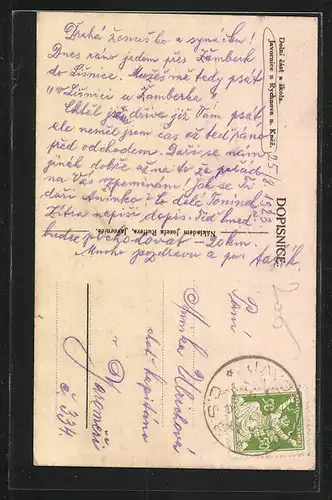 Drahá ženuško a synáčku!
Dnes ráno jedem přes Žamberk
do Líšnice. Můžeš mě tedy psát
"v Líšnici u Žamberka"
Chtěl jsem dříve již Vám psát,
ale neměl jsem čas až teď ráno
před odchodem. Daří se nám
jináč dobře až na to že pořád
na Vás vzpomínám. Jak se Ti
daří Aninko? Co dělá Toníneček
Zítra napíši dopis. Teď hned
budem pochodovat 20 km.
Mnoho pozdravů a pus
Dolní část a škola.
Javornice u Rychnova n. Kněž.
25/8 1923
DOPISNICE.
Nákladem Josefa Ruffera, Javornice.
Paní
Annka Ulrichová
choť kapitána
v Jaroměři
č 334
35